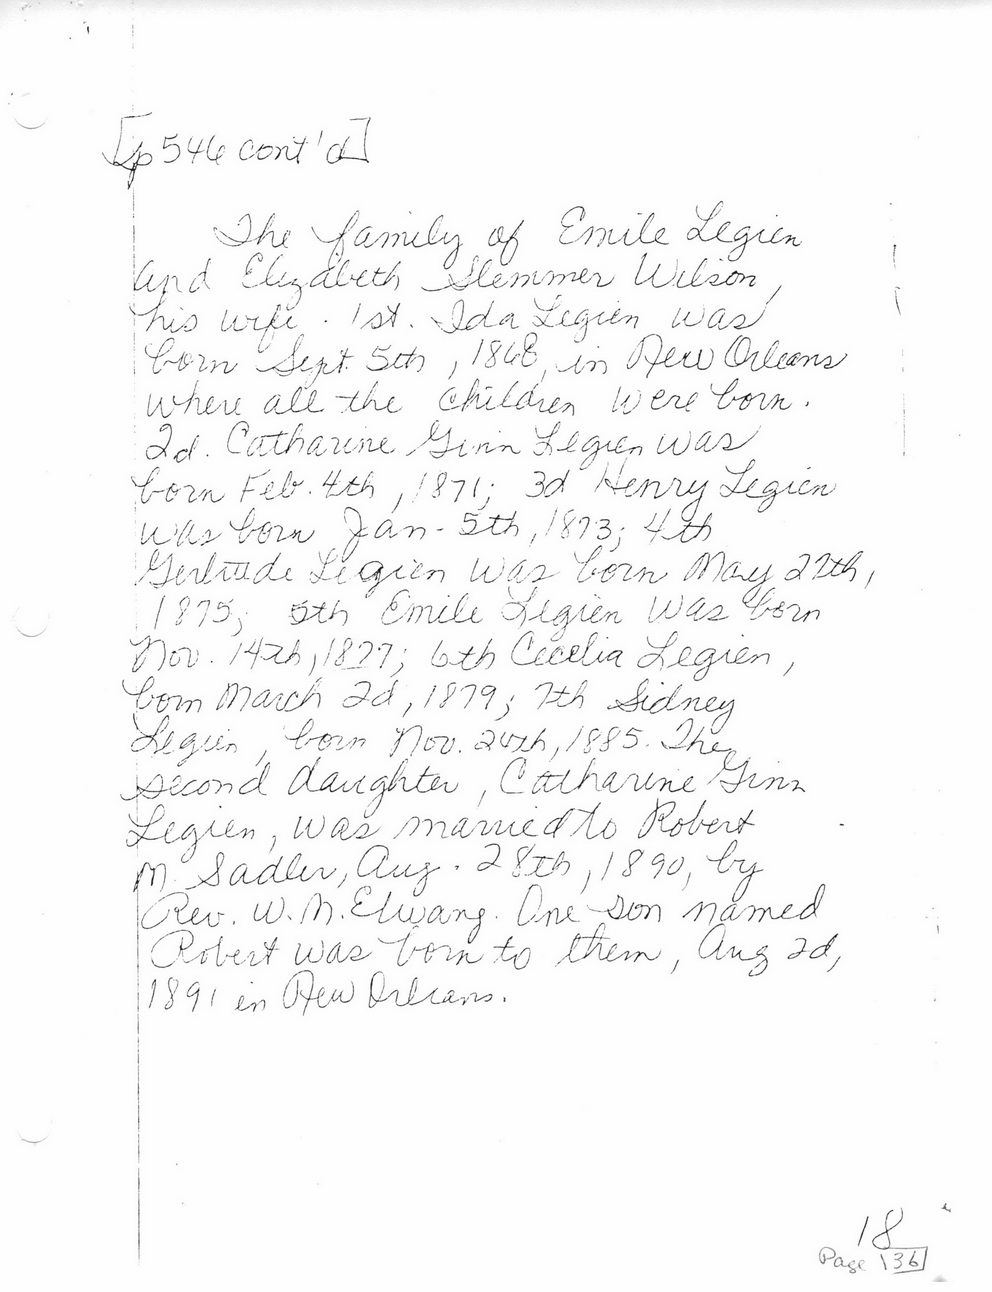 [p 546 cont'd]
The family of Emile Legien
and Elizabeth Slemmer Wilson,
his wife. 1st. Ida Legien was
born Sept. 5th, 1868, in New Orleans
where all the children were born.
2d. Catharine Ginn Legien was
born Feb. 4th, 1871; 3d Henry Legien
was born Jan. 5th, 1873; 4th
Gertrude Legien was born May 27th,
1875; 5th Emile Legien was born
Nov. 14th, 1877; 6th Cecelia Legien,
born March 2d, 1879; 7th Sidney
Legien, born Nov. 24th, 1885. The
second daughter, Catharine Ginn
Legien, was married to Robert
M. Sadler, Aug. 28th, 1890, by
Rev. W. M. Elwang. One son named
Robert was born to them, Aug 2d,
1891 in New Orleans.
18
Page 136